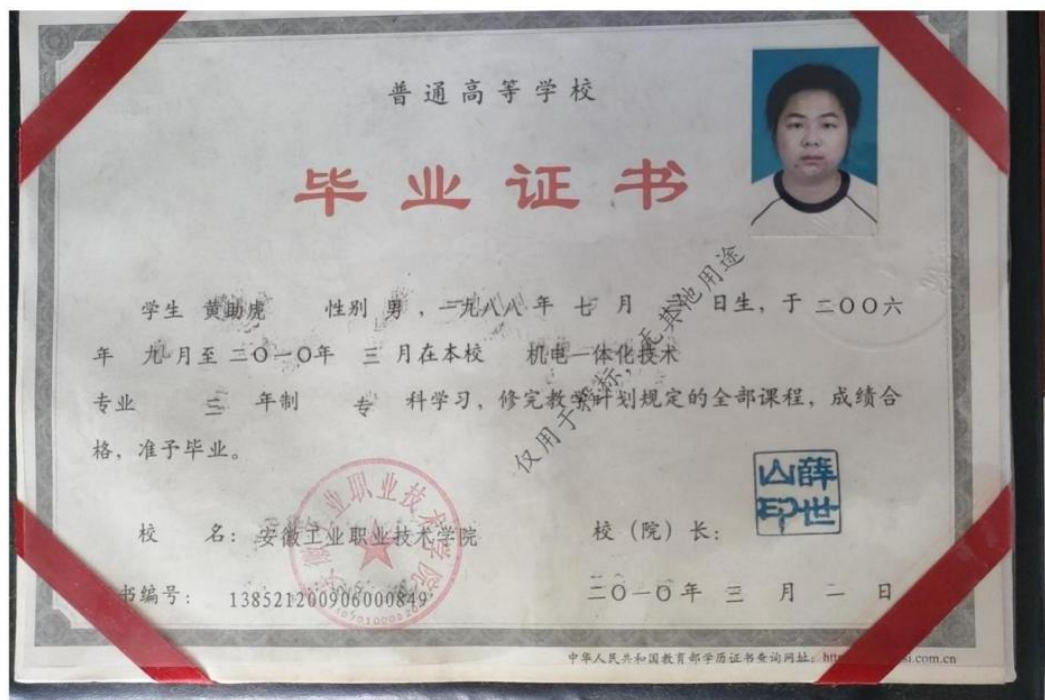 普通高等学校
毕业证书
学生 黄助虎 性别 男，一九八八年 七 月 日生，于 二〇〇六
年 九月至 二〇一〇年 三 月在本校 机电一体化技术
专业 三 年制 专 科学习，修完教学计划规定的全部课程，成绩合
格，准予毕业。
仅用于投标，无其他用途
安徽工业职业技术学院
薛世山印
校 名：安徽工业职业技术学院 校（院）长：
书编号：138521200906000849 二〇一〇年 三 月 一 日
中华人民共和国教育部学历证书查询网址：htt si.com.cn